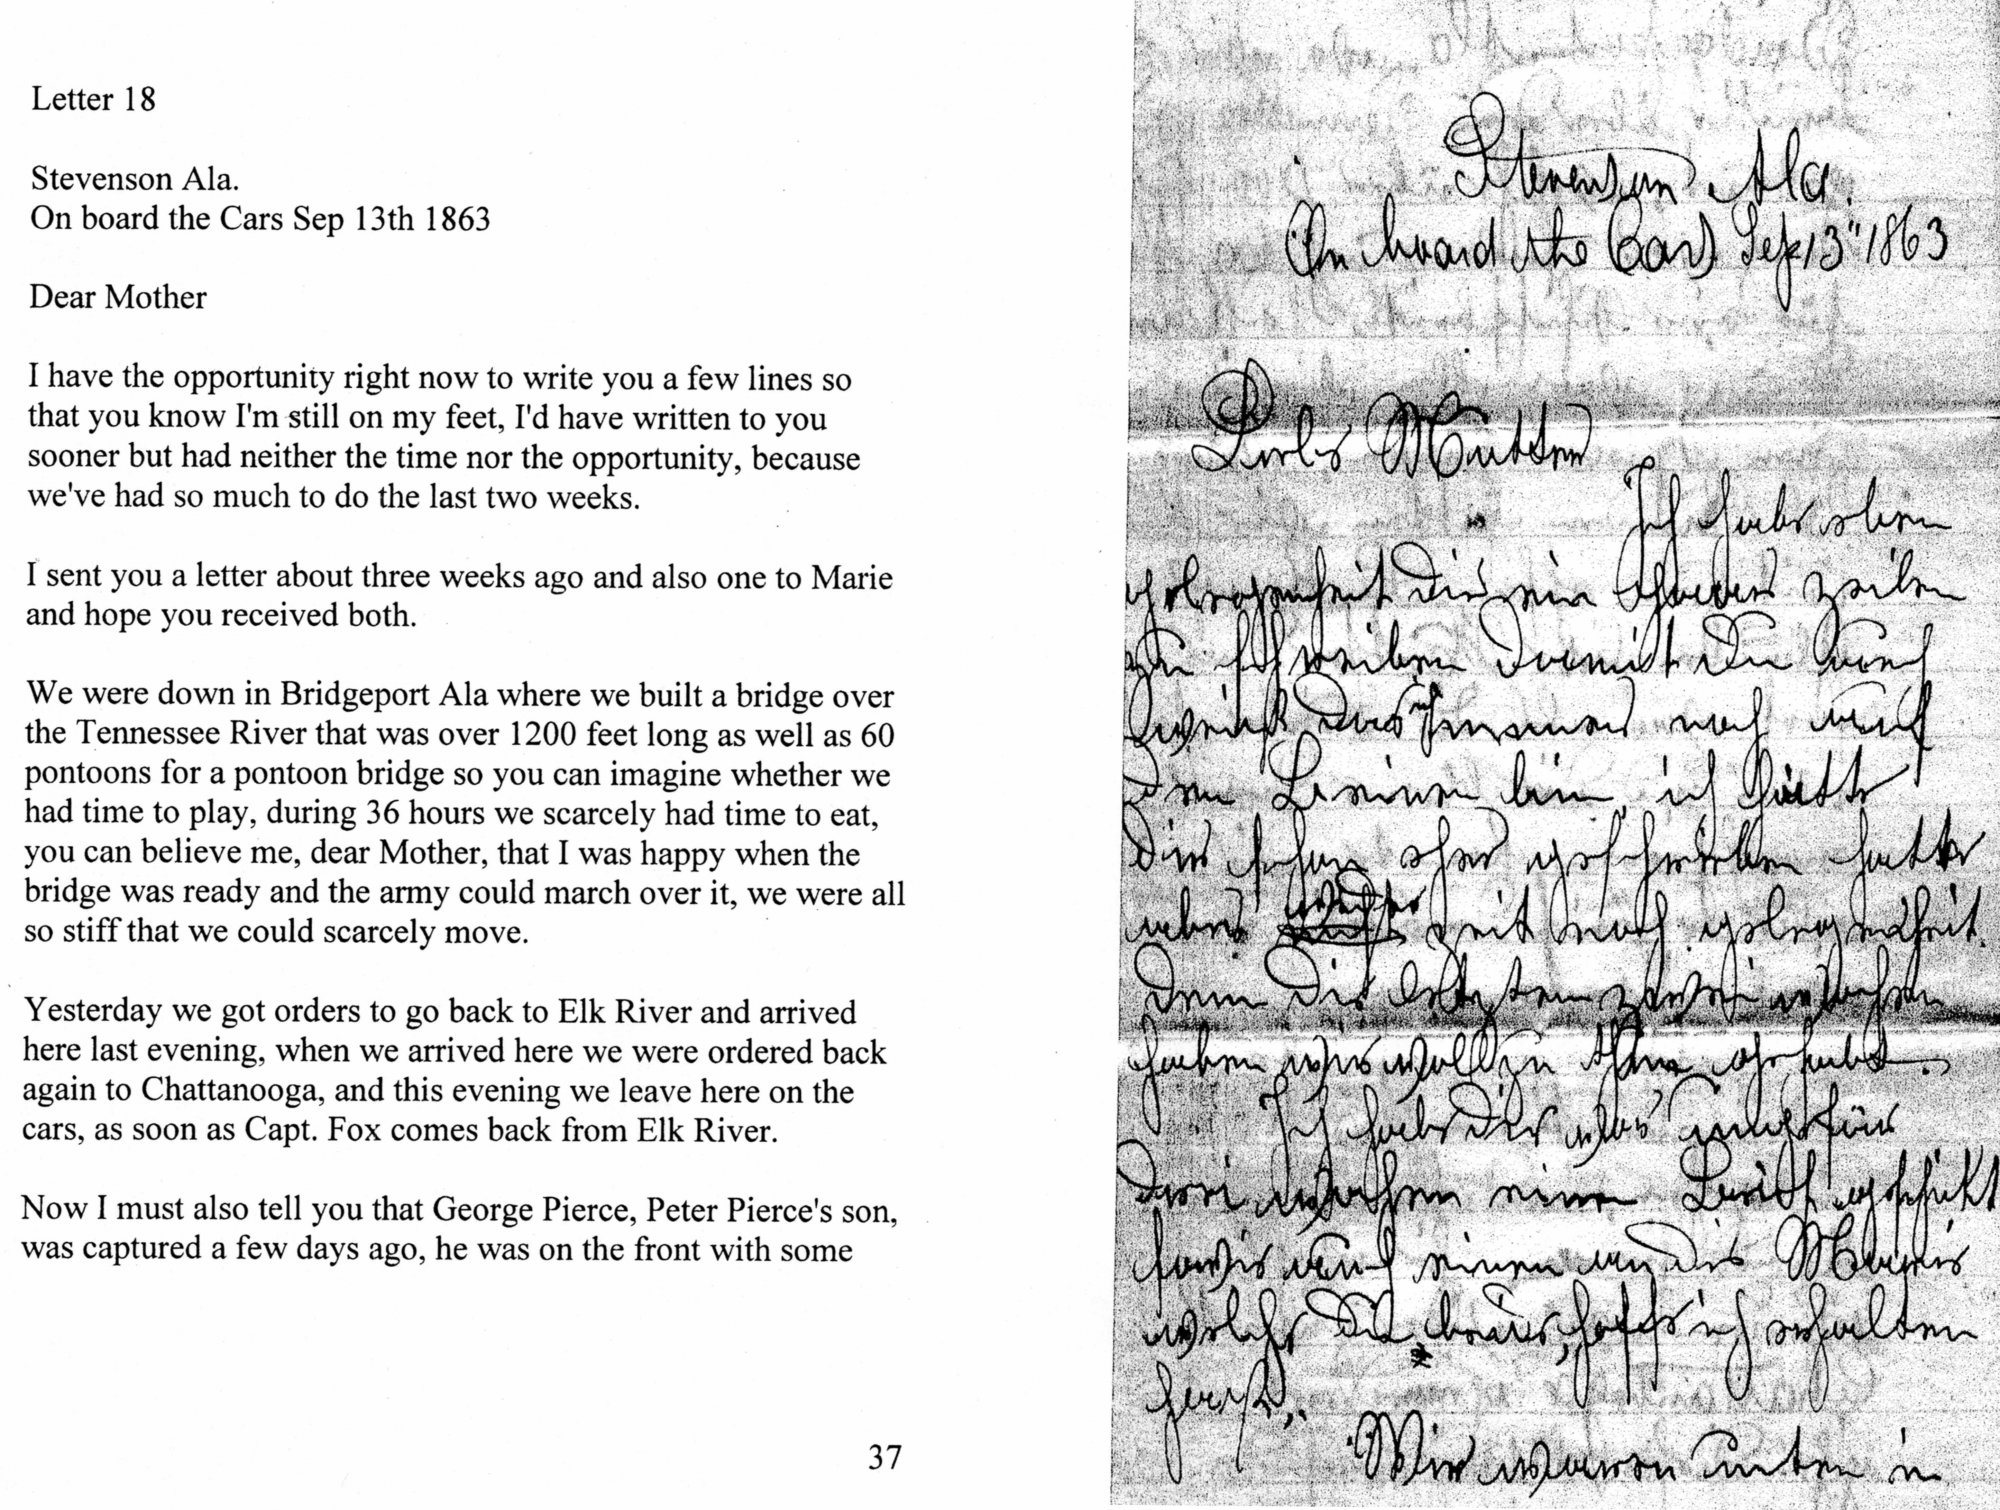 Letter 18
Stevenson Ala.
On board the Cars Sep 13th 1863
Dear Mother
I have the opportunity right now to write you a few lines so
that you know I'm still on my feet, I'd have written to you
sooner but had neither the time nor the opportunity, because
we've had so much to do the last two weeks.
I sent you a letter about three weeks ago and also one to Marie
and hope you received both.
We were down in Bridgeport Ala where we built a bridge over
the Tennessee River that was over 1200 feet long as well as 60
pontoons for a pontoon bridge so you can imagine whether we
had time to play, during 36 hours we scarcely had time to eat,
you can believe me, dear Mother, that I was happy when the
bridge was ready and the army could march over it, we were all
so stiff that we could scarcely move.
Yesterday we got orders to go back to Elk River and arrived
here last evening, when we arrived here we were ordered back
again to Chattanooga, and this evening we leave here on the
cars, as soon as Capt. Fox comes back from Elk River.
Now I must also tell you that George Pierce, Peter Pierce's son,
was captured a few days ago, he was on the front with some
37
Stevenson Ala.
On board the Cars Sep 13" 1863
Liebe Mutter
Ich habe eben
gelegenheit dir ein paar zeilen
zu schreiben damit du auch
weist das ich immer noch auf
den Beinen bin, ich hätte
dir schon eher geschrieben hatte
aber weder zeit noch gelegenheit.
denn die letzten zwei wochen
haben wir voll zu thun gehabt.
Ich habe dir vor ungefär
drei wochen einen Brief geschickt
sowie auch einen an die Marie
welche du hoffe ich erhalten
hast,
Wir waren unten in